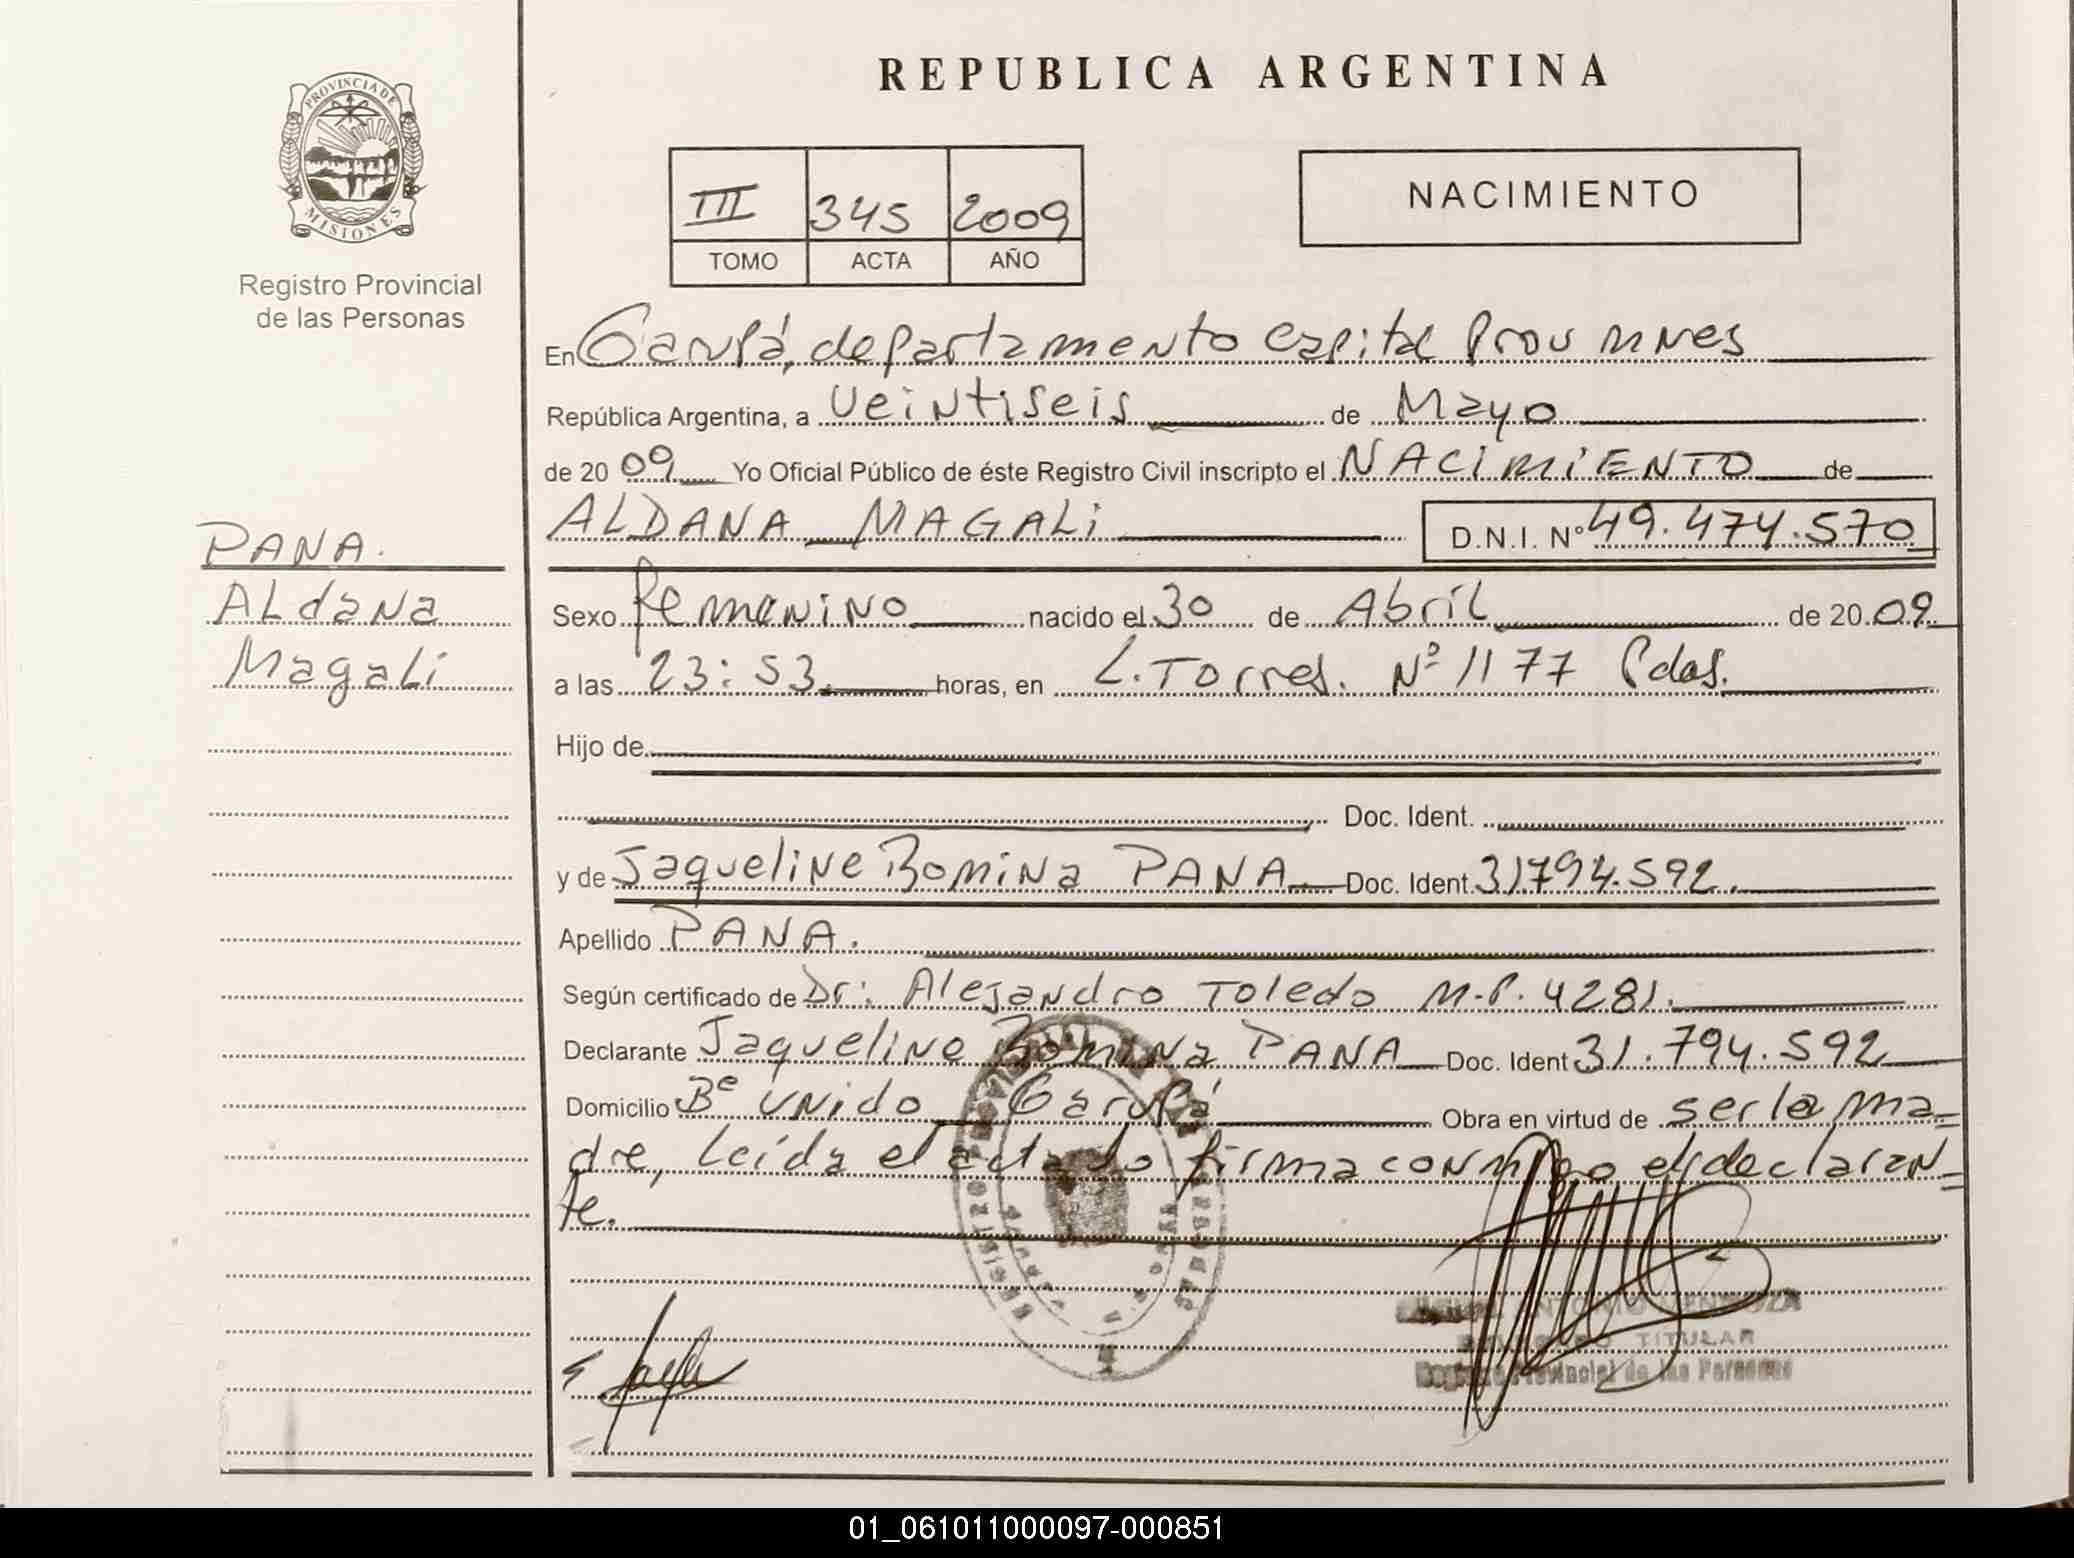 PROVINCIA DE
MISIONES
Registro Provincial
de las Personas
PANA.
ALdaNa
MagaLi
REPUBLICA ARGENTINA
III 345 2009
TOMO ACTA AÑO
NACIMIENTO
En Garupá, departamento capital Prov MNes
República Argentina, a veiNtiseis de Mayo
de 20 09 Yo Oficial Público de éste Registro Civil inscripto el NACIMIENTO de
ALDANA MAGALi D.N.I. Nº 49.474.570
Sexo femeNiNo nacido el 30 de Abril de 20 09
a las 23:53. horas, en L. Torres. Nº 1177 Pdas.
Hijo de
Doc. Ident.
y de JaqueliNe RomiNa PANA. Doc. Ident. 31794.592.
Apellido PANA.
Según certificado de Dr: AlejaNdro Toledo M.P. 4281.
Declarante JaqueliNe RomiNa PANA Doc. Ident 31.794.592
Domicilio Bº UNido Garupá Obra en virtud de ser la ma=
dre, Leída el acta lo firma coNmigo el declaraN=
te.
ANTONIO MENDOZA
TITULAR
Registro Provincial de las Personas
01_061011000097-000851